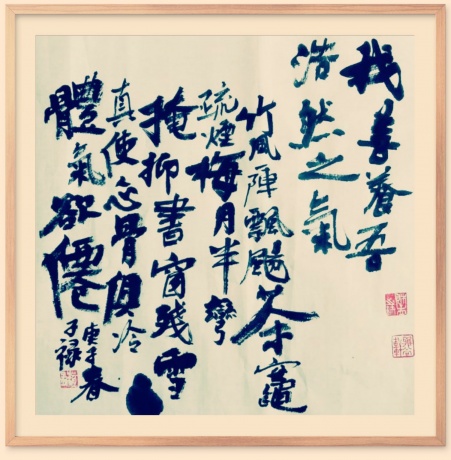 我善養吾
浩然之氣
竹風陣飄颺茶竈
疏煙梅月半彎
掩抑書窗殘雪
真使心骨俱冷
體氣欲僊
庚子春
子禄